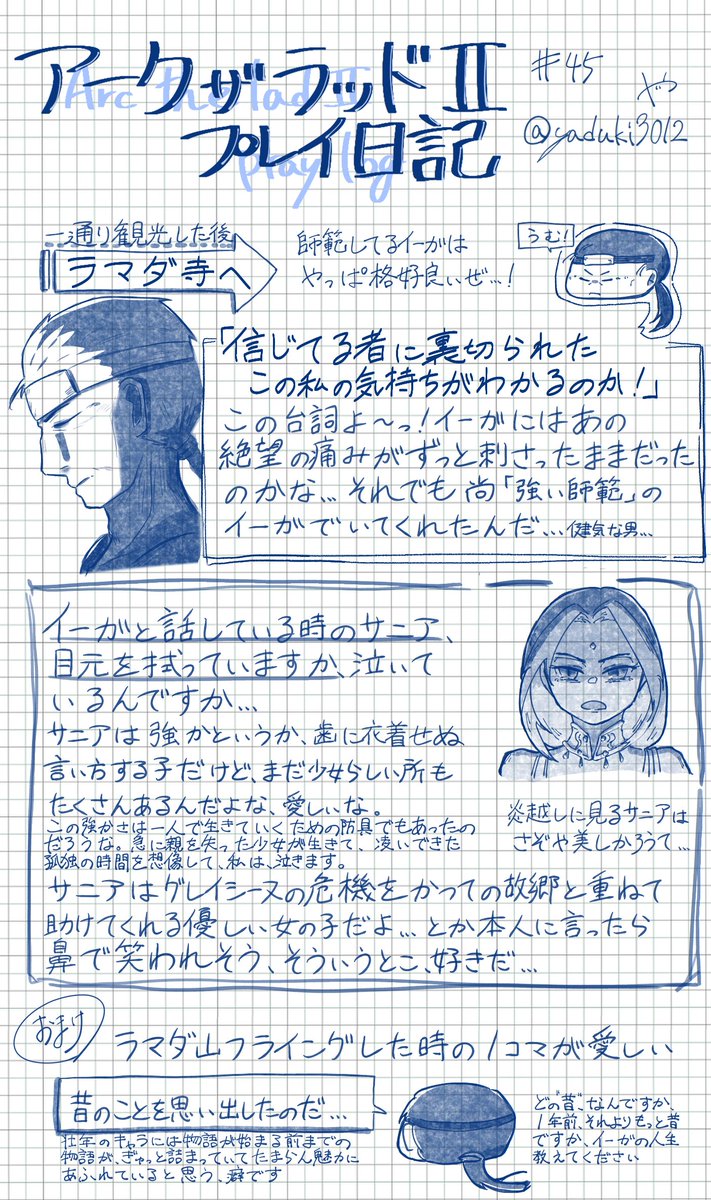 アークザラッドⅡ
Arc the lad Ⅱ
プレイ日記
play log
#45
やづ
@yaduki3012
一通り観光した後
ラマダ寺へ
師範してるイーガは
やっぱ格好良いぜ…!
うむ!
「信じてる者に裏切られた
この私の気持ちがわかるのか!」
この台詞よ~っ!イーガにはあの
絶望の痛みがずっと刺さったままだった
のかな…それでも尚「強い師範」の
イーガでいてくれたんだ…健気な男…
イーガと話している時のサニア、
目元を拭っていますか、泣いて
いるんですか…
サニアは強かというか、歯に衣着せぬ
言い方する子だけど、まだ少女らしい所も
たくさんあるんだよな、愛しいな。
この強かさは一人で生きていくための防具でもあったの
だろうな。急に親を失った少女が生きて、凌いできた
孤独の時間を想像して、私は、泣きます。
炎越しに見るサニアは
さぞや美しかろうて…
サニアはグレイシーヌの危機をかつての故郷と重ねて
助けてくれる優しい女の子だよ…とか本人に言ったら
鼻で笑われそう、そういうとこ、好きだ…
おまけ
ラマダ山フライングした時の1コマが愛しい
昔のことを思い出したのだ…
壮年のキャラには物語が始まる前までの
物語が、ぎゅっと詰まっていてたまらん魅力に
あふれていると思う、癖です
どの"昔"、なんですか、
1年前、それよりもっと昔
ですか、イーガの人生
教えてください